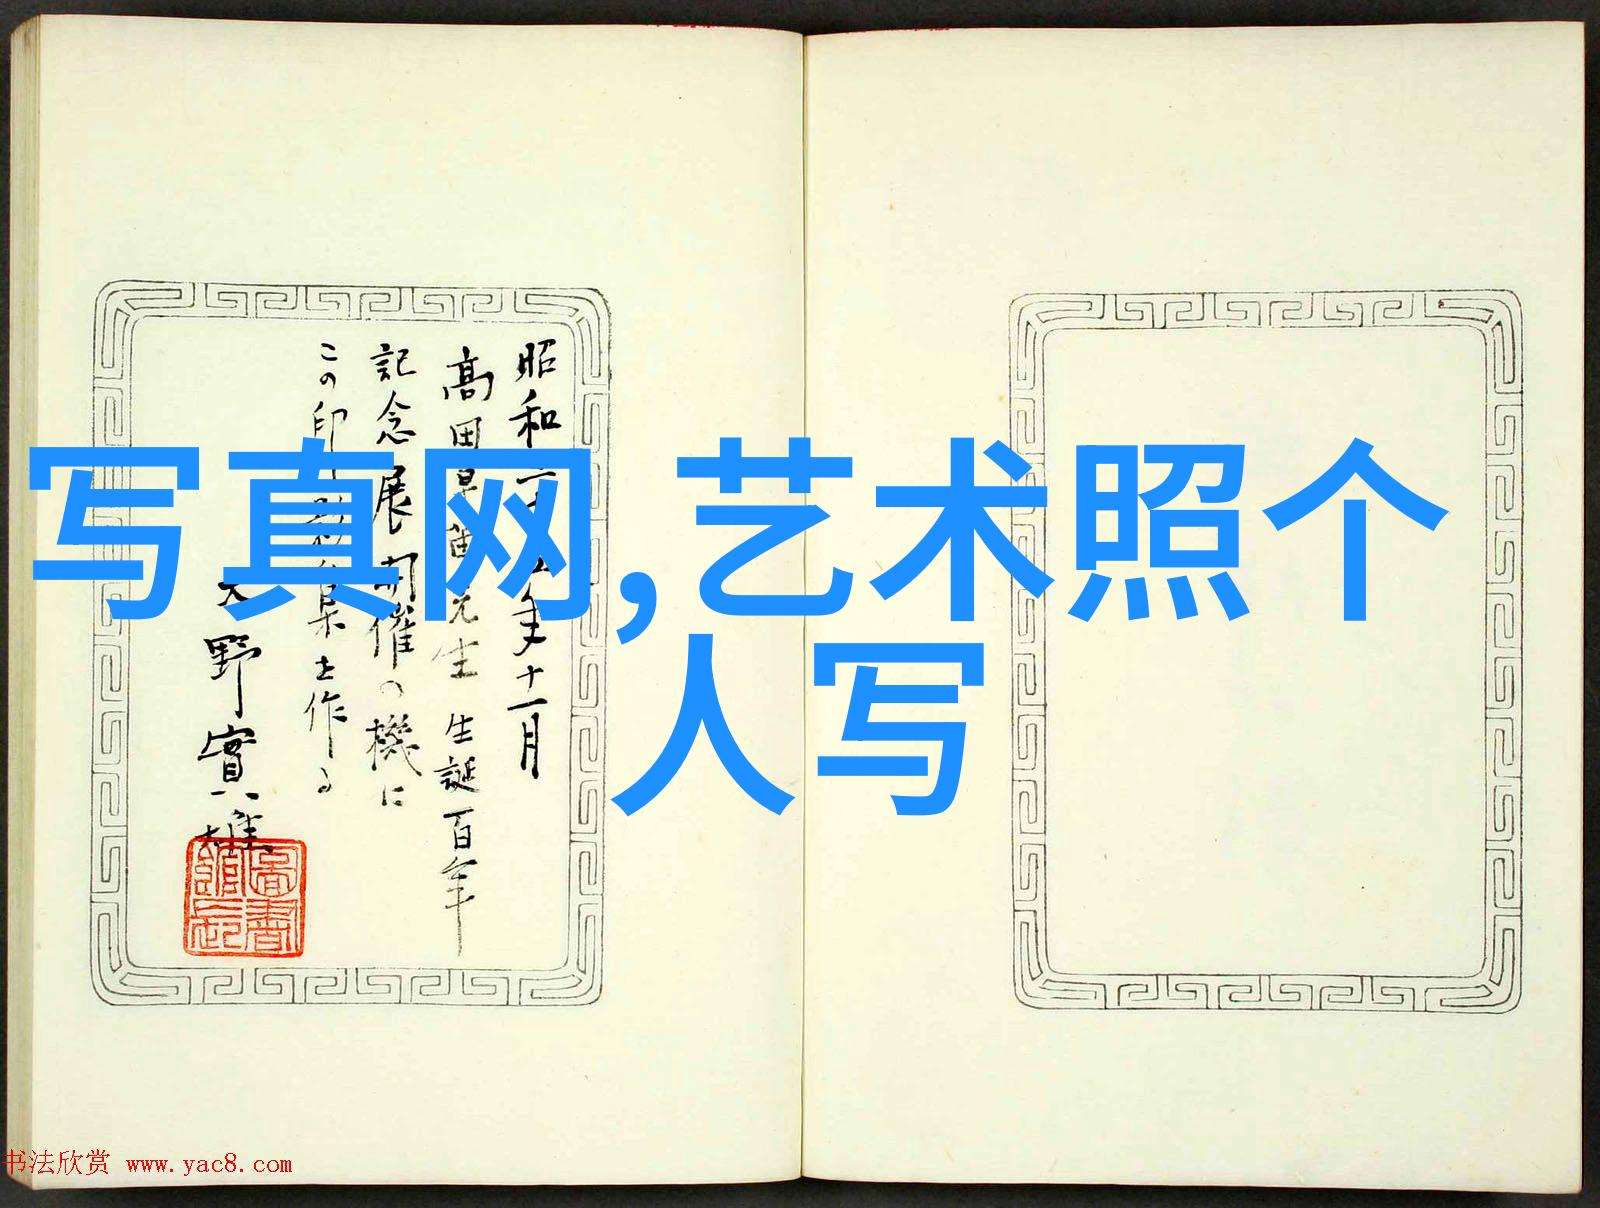 写真网,艺术照个
人写
昭和三十五年十一月
高田早苗先生 生誕百年
記念展開催の機に
この印影集を作る
大野實雄
圖書
館長
书法欣赏 www.yac8.com